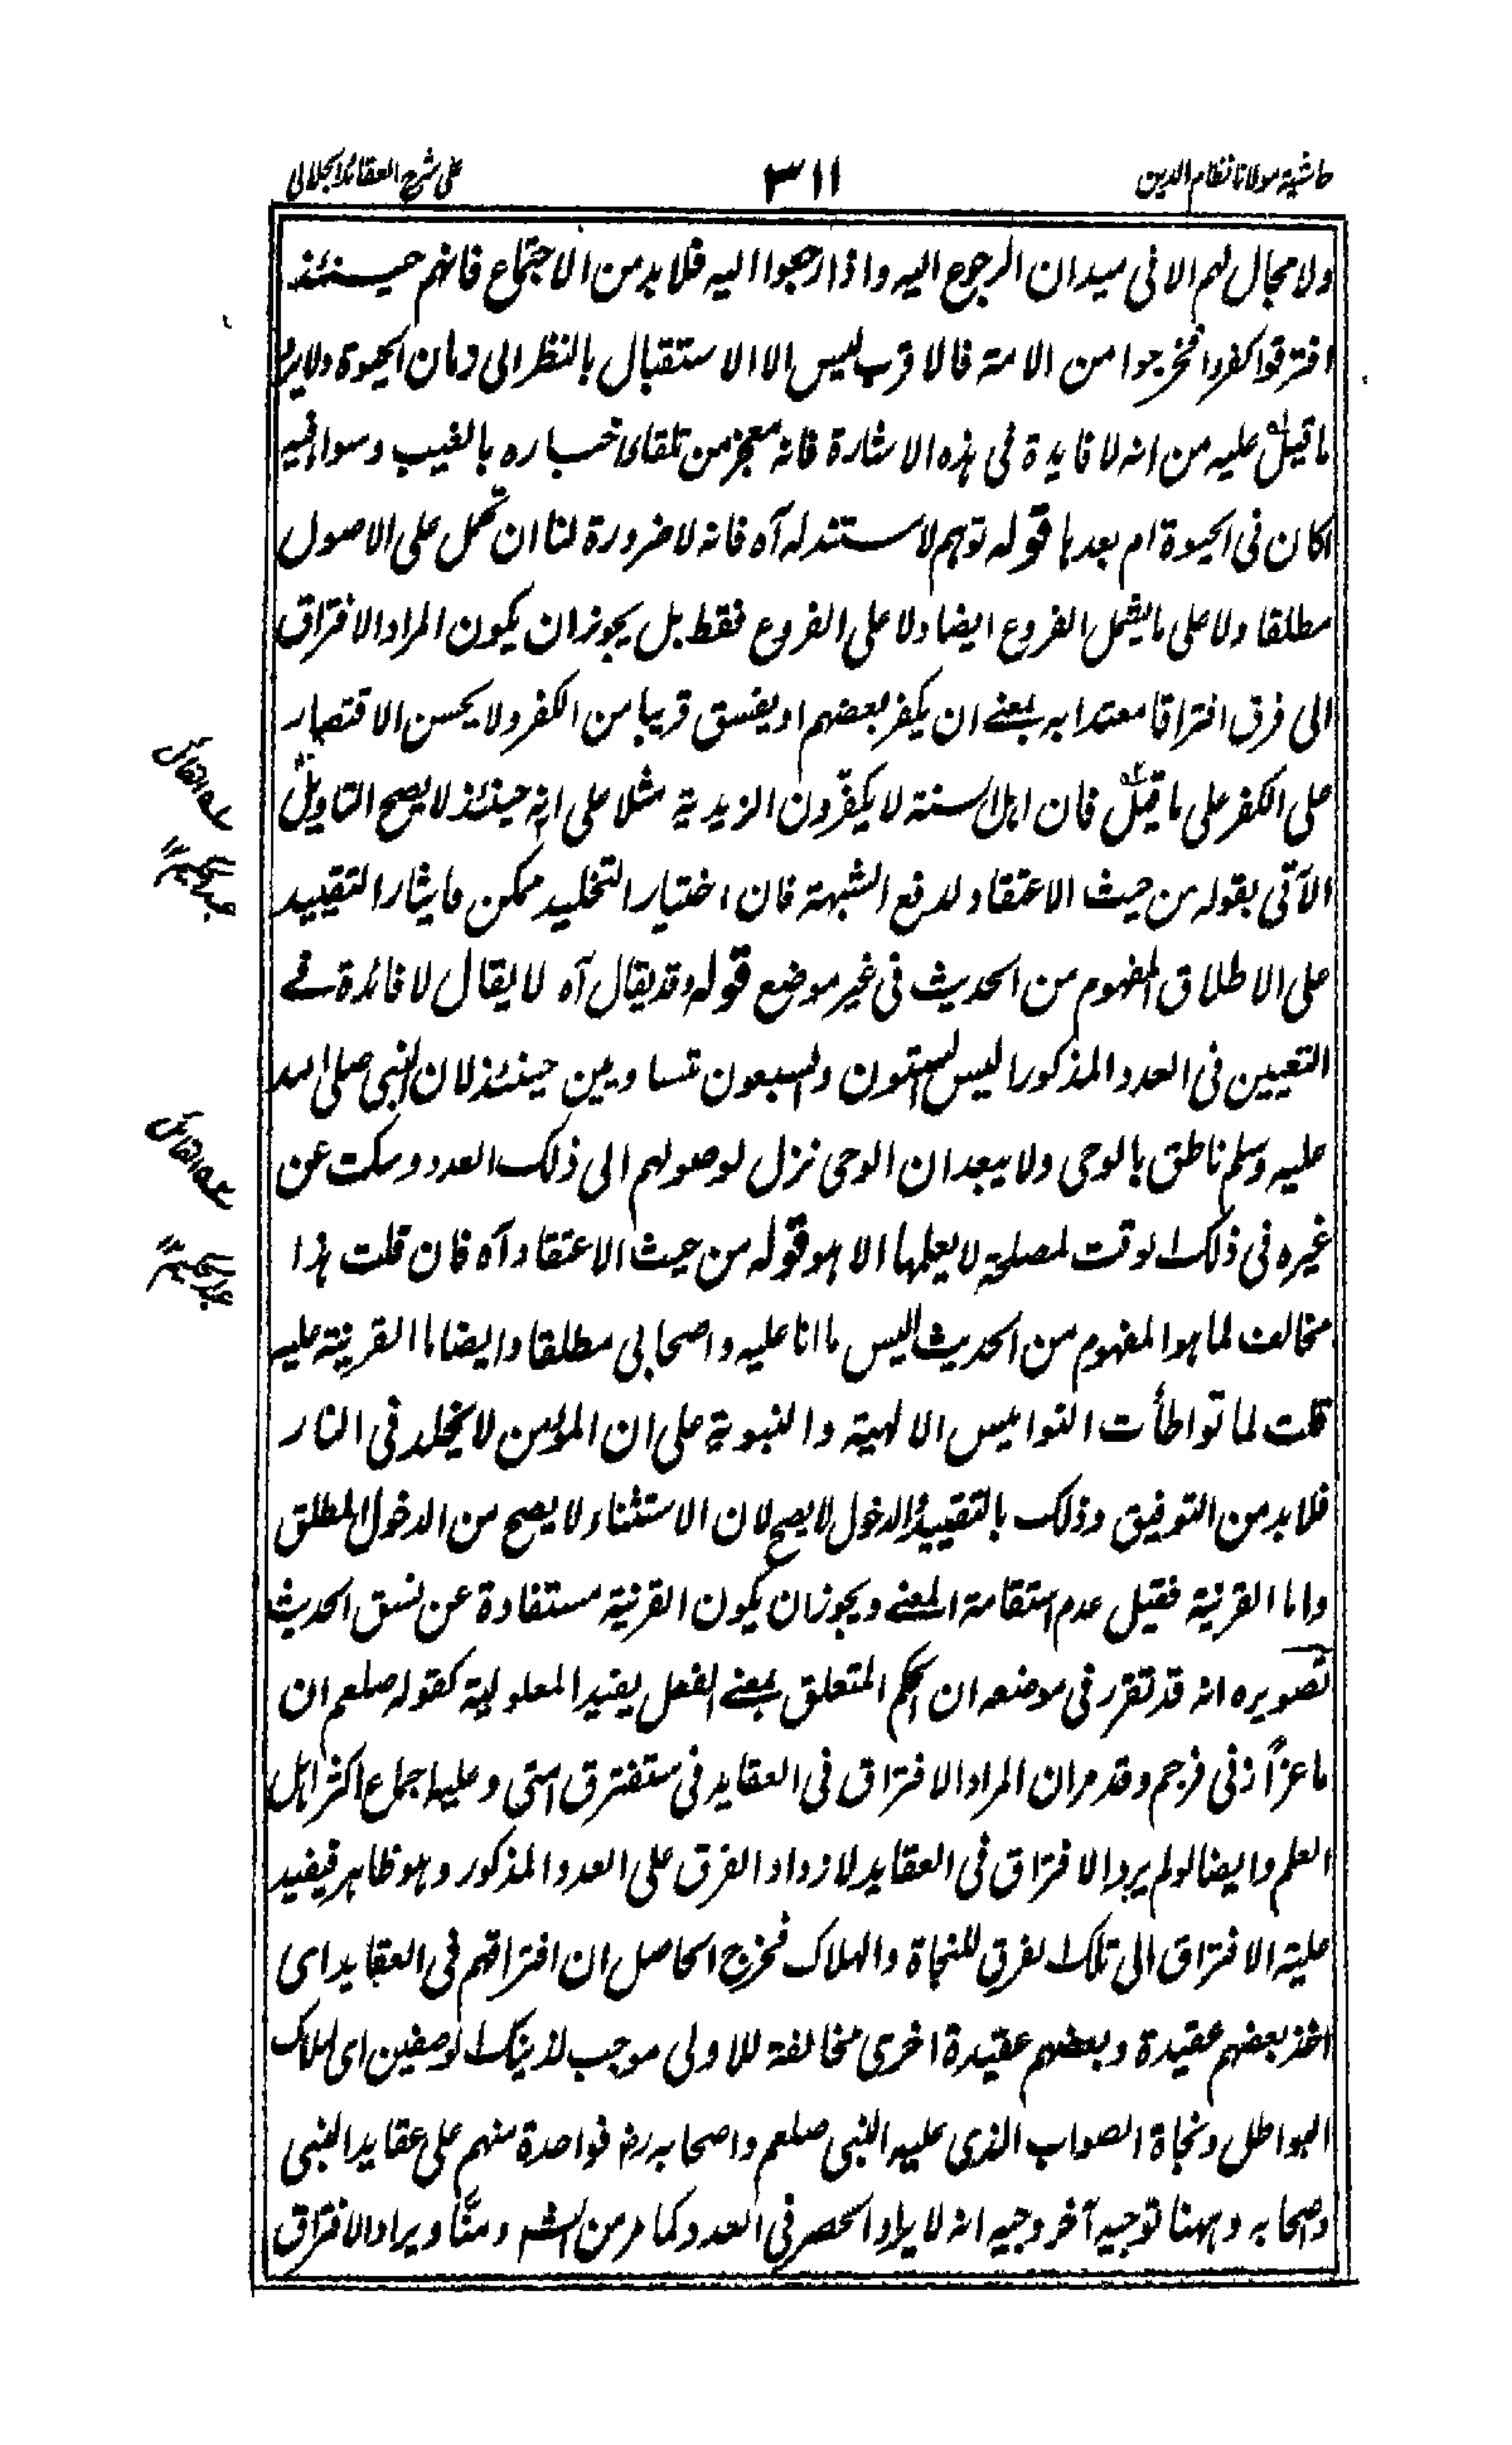 حاشية مولانا نظام الدين
٣١١
على شرح العقائد الجلالى
ولا مجال لهم الا فى ميدان الرجوع اليه واذا رجعوا اليه فلا بد من الاجتماع فانهم حينئذ
افترقوا كفروا فخرجوا من الامة فالاقرب ليس الا الاستقبال بالنظر الى زمان الحيوة ولا يرد
ما قيل عليه من انه لا فايدة فى هذه الاشارة فانه معجز من تلقاى خباره بالغيب وسواء فيه
اكان فى الحيوة ام بعدها قوله توهم لا مستند له آه فانه لا ضرورة لنا ان نحمل على الاصول
مطلقا ولا على ما يشمل الفروع ايضا ولا على الفروع فقط بل يجوز ان يكون المراد الافتراق
الى فرق افتراقا معتدا به بمعنے ان يكفر بعضهم او يفسق قريبا من الكفر ولا يحسن الاقتصار
على الكفر على ما قيل فان اهل السنة لا يكفّرون الزيدية مثلا على انه حينئذ لا يصح التاويل
الآتى بقوله من حيث الاعتقاد لدفع الشبهة فان اختيار التخليد ممكن فايثار التقييد
على الاطلاق المفهوم من الحديث فى غير موضع قوله وقد يقال آه لا يقال لا فائدة فے
التعيين فى العدد المذكور اليس الستون والسبعون متساويين حينئذ لان النبى صلى الله
عليه وسلم ناطق بالوحى ولا يبعد ان الوحى نزل لوصولهم الى ذلك العدد وسكت عن
غيره فى ذلك الوقت لمصلحة لا يعلمها الا هو قوله من حيث الاعتقاد آه فان قلت هذا
مخالف لما هو المفهوم من الحديث اليس ما انا عليه واصحابى مطلقا وايضا ما القرينة عليه
قلت لما تواطأت النواميس الالهية والنبوية على ان المؤمن لا يخلد فى النار
فلا بد من التوفيق وذلك بالتقييد والدخول لا يصح لان الاستثناء لا يصح من الدخول المطلق
واما القرينة فقيل عدم استقامة المعنے ويجوز ان يكون القرينة مستفادة عن نسق الحديث
تصويره انه قد تقرر فى موضعه ان الحكم المتعلق بمعنے الفعل يفيد المعلولية كقوله صلعم ان
ماعزاً زنى فرجم وقد مر ان المراد الافتراق فى العقايد فى ستفترق امتى وعليه اجماع اكثر اهل
العلم وايضا لو لم يرد الافتراق فى العقايد لازداد الفرق على العدد المذكور وهو ظاهر فيفيد
علية الافتراق الى تلك الفرق للنجاة والهلاك فخرج الحاصل ان افتراقهم فى العقايد اى
اخذ بعضهم عقيدة وبعضهم عقيدة اخرى مخالفة للاولى موجب لذينك الوصفين اى هلاك
البواطل ونجاة الصواب الذى عليه النبى صلعم واصحابه رض فواحدة منهم على عقايد النبى
وصحابه وههنا توجيه آخر وجيه انه لا يراد الحصر فى العدد كما مر من الشه ومنّا ويراد الافتراق
عه القائل
عبد الحكيم ١٢
عه القائل
عبد الحكيم ١٢